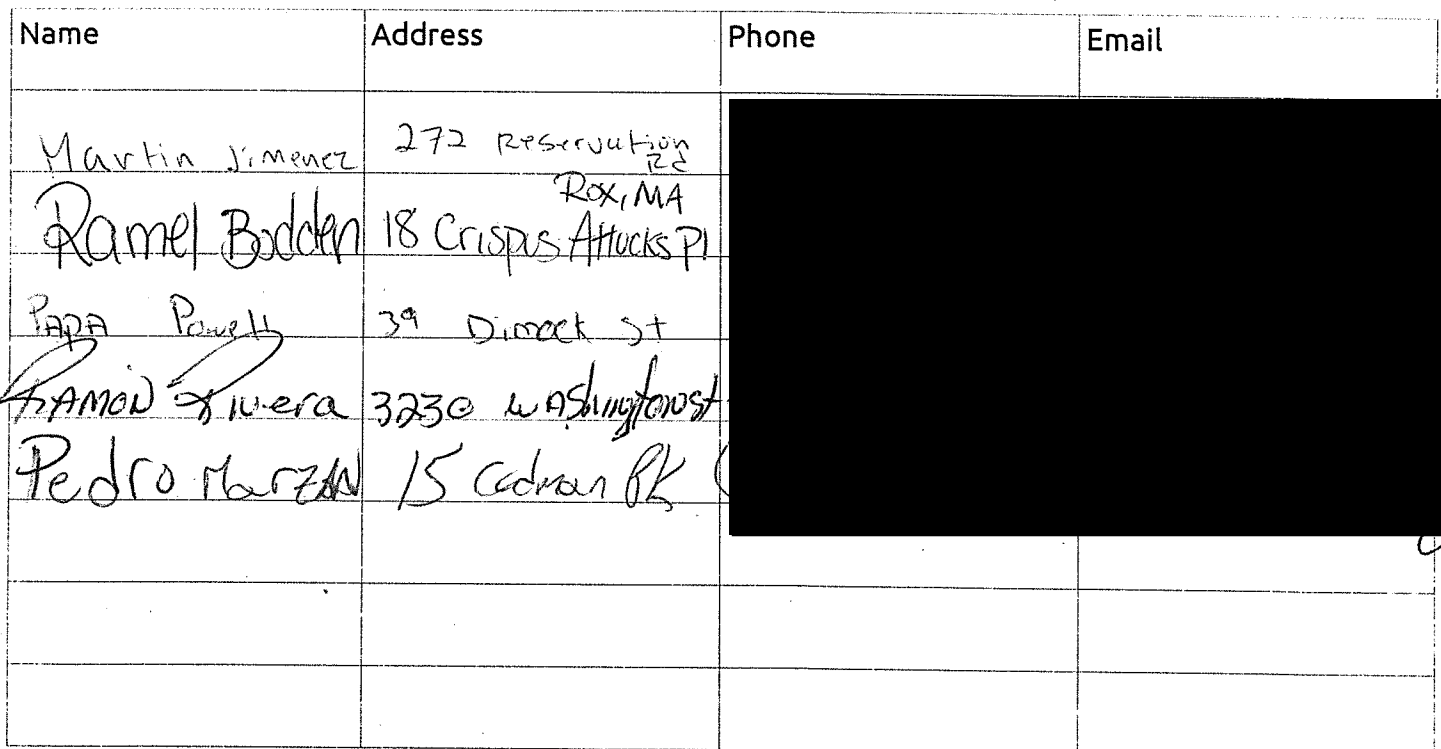 Name Address Phone Email
Martin Jimenez 272 Reservation Rd
Rox, MA
Ramel Bodden 18 Crispus Attucks Pl
PAPA Powell 39 Dimock St
RAMON Rivera 3230 WAShington st
Pedro MarZAN 15 Codman PK